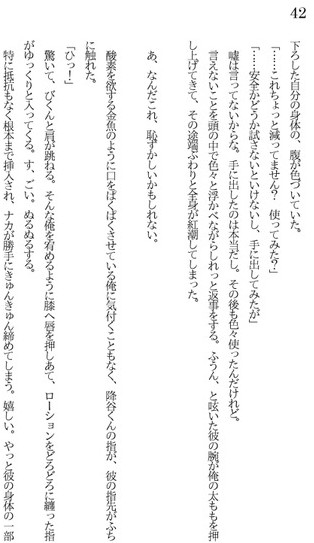 42
下ろした自分の身体の、腹が色づいていた。
「……これちょっと減ってません？　使ってみた？」
「……安全かどうか試さないといけないし、手に出してみたが」
嘘は言ってないからな。手に出したのは本当だし。その後も色々使ったんだけれど。
言えないことを頭の中で色々と浮かべながらしれっと返事をする。ふうん、と呟いた彼の腕が俺の太ももを押
し上げてきて、その途端ぶわりと全身が紅潮してしまった。
あ、なんだこれ、恥ずかしいかもしれない。
酸素を欲する金魚のように口をぱくぱくさせている俺に気付くこともなく、降谷くんの指が、彼の指先がふち
に触れた。
「ひっ！」
驚いて、びくんと肩が跳ねる。そんな俺を宥めるように膝へ唇を押しあて、ローションをどろどろに纏った指
がゆっくりと入ってくる。す、ごい。ぬるぬるする。
特に抵抗もなく根本まで挿入され、ナカが勝手にきゅんきゅん締めてしまう。嬉しい。やっと彼の身体の一部